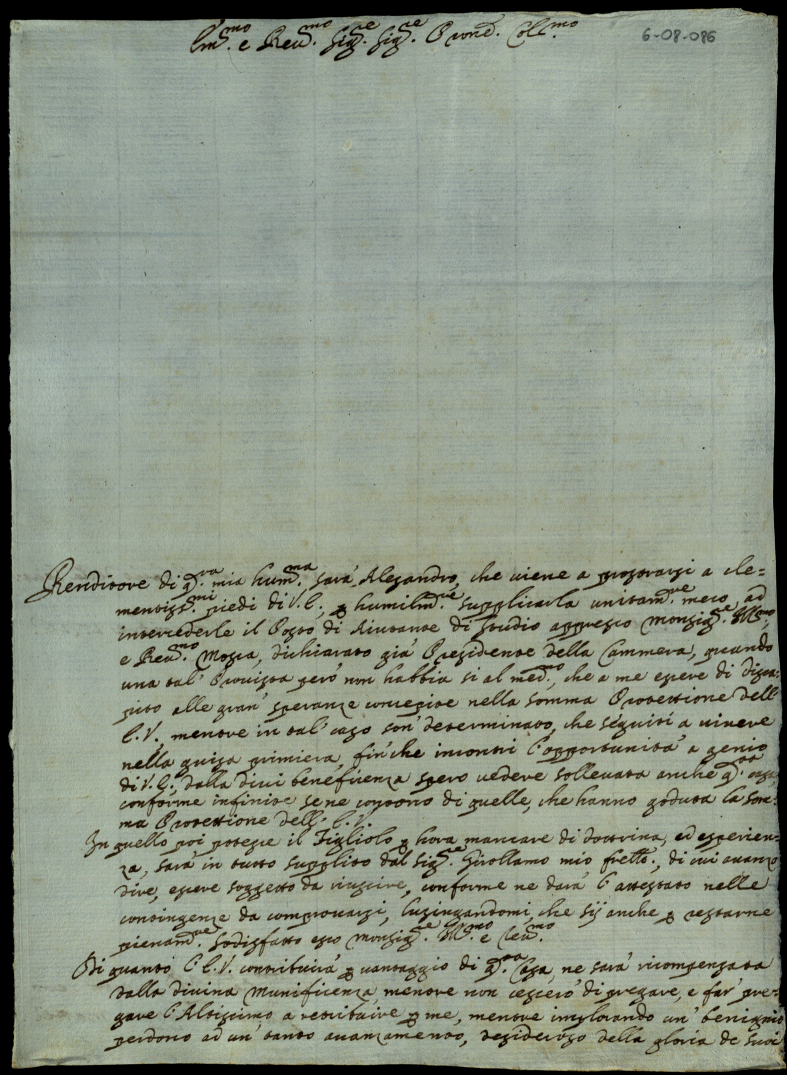 Ill.mo e Reu.mo Sig.re Sig.re Pron.e Coll.mo
6-08-086
Renditore di q.ta mia hum.ma sarà Alesandro, che uiene a prostrarsi a cle=
mentiss.mi piedi di V.E., p humilm.te supplicarla unitam.te meco, ad
intercederle il Posto di Aiutante di studio appresso Monsig.re Ill.mo,
e Reu.mo Mosca, dichiarato già Presidente della Cammera, quando
una tal' Prouista però non habbia si al med.mo, che a me essere di disca=
pito alle gran' speranze concepite nella somma Protettione dell'
E.V. mentre in tal' caso son' determinato, che seguiti a uiuere
nella guisa primiera, fin'che incontri l'opportunità a genio
di V.E., dalla di cui beneficenza spero vedere solleuata anche q.ta casa,
conforme infinite se ne contono di quelle, che hanno goduta la som=
ma Protettione dell' E.V.
In quello poi potesse il Figliolo p hora mancare di dottrina, ed esperien=
za, sarà in tutto supplito dal Sig.re Girollamo mio frello, di cui auanzo
dire, essere soggetto da riuscire, conforme ne darà l'attestato nelle
contingenze da comprouarsi, lusingandomi, che sij anche p restarne
pienam.te sodisfatto esso Monsig.re Ill.mo e Reu.mo
Di quanto l'E.V. contribuirà p uantaggio di q.ta Casa, ne sarà ricompensata
dalla diuina munificenza, mentre non cesserò di pregare, e far' pre=
gare l'Altissimo a retribuire p me, mentre implorando un' benigno
perdono ad un' tanto auanzamento, desideroso della gloria de suoi